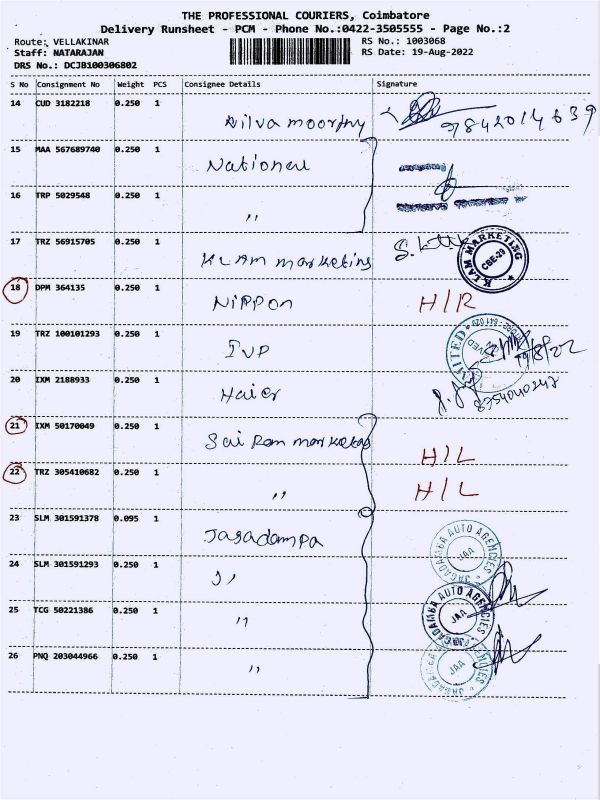 THE PROFESSIONAL COURIERS, Coimbatore
Delivery Runsheet - PCM - Phone No.:0422-3505555 - Page No.:2
Route: VELLAKINAR RS No.: 1003068
Staff: NATARAJAN RS Date: 19-Aug-2022
DRS No.: DCJB100306802
S No Consignment No Weight PCS Consignee Details Signature
14 CUD 3182218 0.250 1 Nilva moorthy 9842014639
15 MAA 567689740 0.250 1 National
16 TRP 5029548 0.250 1 "
17 TRZ 56915705 0.250 1 KLAM marketing KLAM MARKETING CBE-29
18 DPM 364135 0.250 1 NIPPON H/R
19 TRZ 100101293 0.250 1 IVP 19/8/22
20 IXM 2188933 0.250 1 Haier 8754040247
21 IXM 50170049 0.250 1 Sai Ram marketing H/L
22 TRZ 305410682 0.250 1 " H/L
23 SLM 301591378 0.095 1 Jagadampa JAGADAMBA AUTO AGENCIES JAA
24 SLM 301591293 0.250 1 "
25 TCG 50221386 0.250 1 " JAGADAMBA AUTO AGENCIES JAA
26 PNQ 203044966 0.250 1 " JAGADAMBA AUTO AGENCIES JAA